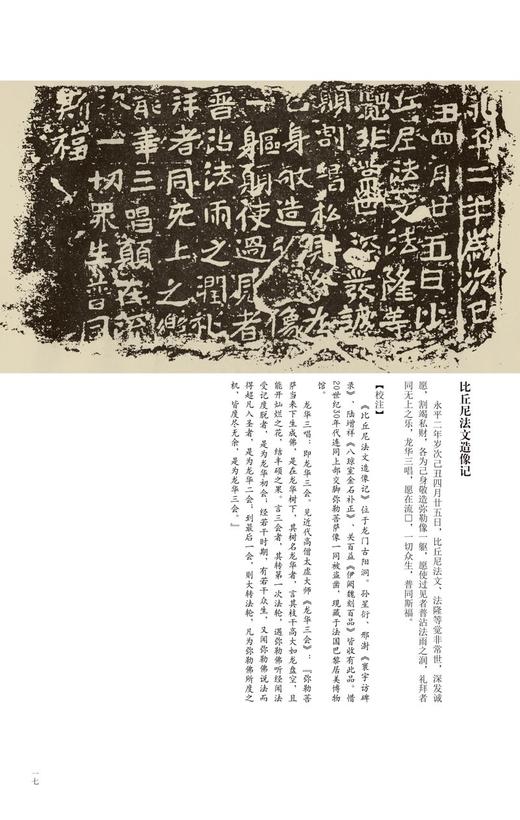 永平二年歲次己
丑四月廿五日比
丘尼法文法隆等
覺非常世深發誠
願割竭私財各為
己身敬造弥勒像
一軀願使過見者
普沾法雨之潤礼
拜者同无上之樂
龍華三唱願在流
次一切眾生普同
斯福
比丘尼法文造像记
永平二年岁次己丑四月廿五日，比丘尼法文、法隆等觉非常世，深发诚
愿，割竭私财，各为己身敬造弥勒像一躯，愿使过见者普沾法雨之润，礼拜者
同无上之乐，龙华三唱，愿在流□，一切众生，普同斯福。
【校注】
《比丘尼法文造像记》位于龙门古阳洞。孙星衍、邢澍《寰宇访碑
录》、陆增祥《八琼室金石补正》、关百益《伊阙魏刻百品》皆收有此品。惜
20世纪30年代连同上部交脚弥勒菩萨像一同被盗凿，现藏于法国巴黎居美博物
馆。
龙华三唱：即龙华三会。见近代高僧太虚大师《龙华三会》：『弥勒菩
萨当来下生成佛，是在龙华树下，其树名龙华者，言其枝干高大如龙盘空，且
能开灿烂之花，结丰硕之果。言三会者，其转第一次法轮，遇弥勒佛听经闻法
受记度脱者，是为龙华初会；经若干时期，有若干众生，又闻弥勒佛说法而
得超凡入圣者，是为龙华二会；到最后一会，则大转法轮，凡为弥勒佛所度之
机，皆度尽无余，是为龙华三会。』
一七